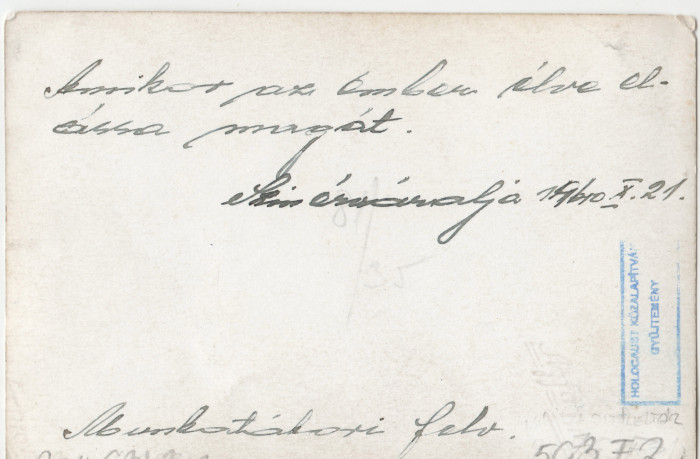 Amikor az ember élve el-
ássa magát.
Szinérváralja 1940 X. 21.
81/35
HOLOCAUST KÖZALAPÍTVÁ
GYŰJTEMÉNY
Munkatábori felv.